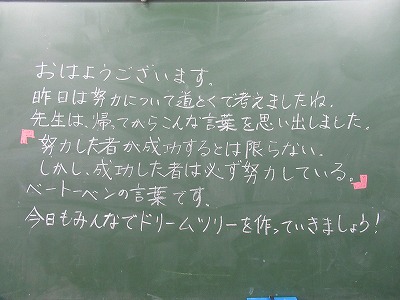 おはようございます。
昨日は努力について道とくで考えましたね。
先生は、帰ってからこんな言葉を思い出しました。
『努力した者が成功するとは限らない。
しかし、成功した者は必ず努力している。』
ベートーベンの言葉です。
今日もみんなでドリームツリーを作っていきましょう！